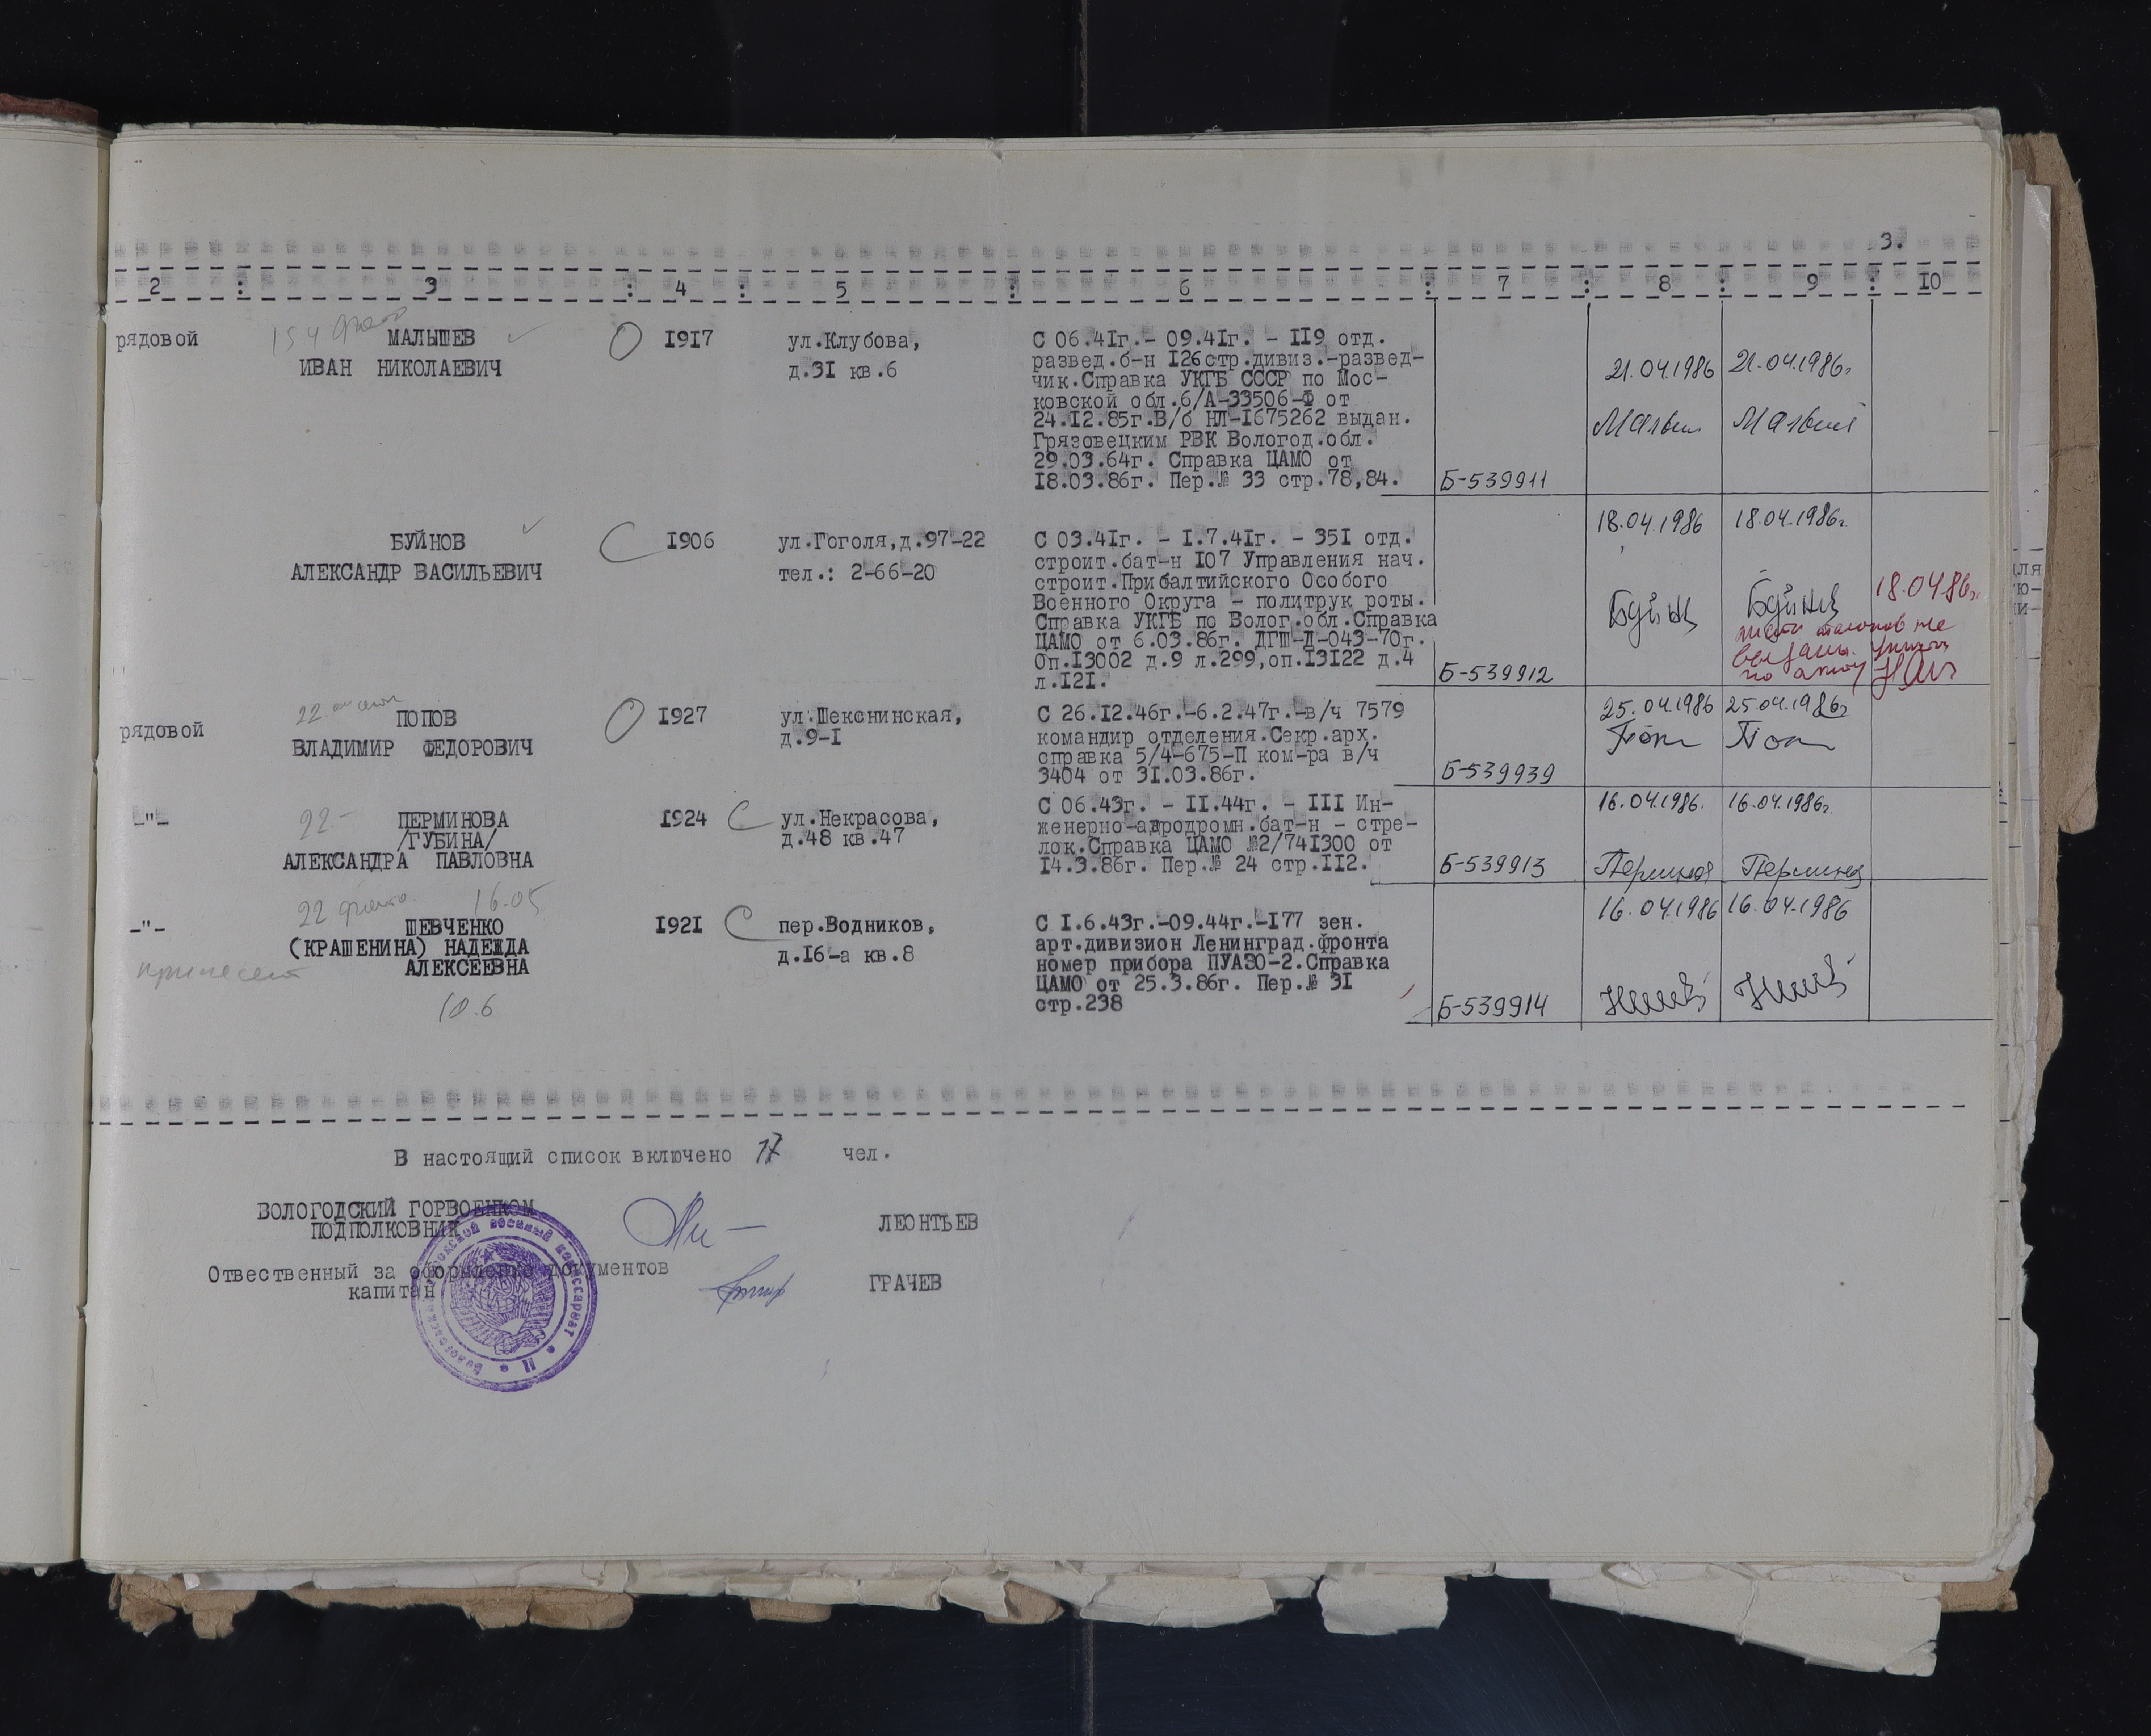 3.
2 : 3 : 4 : 5 : 6 : 7 : 8 : 9 : 10
рядовой
МАЛЫШЕВ
ИВАН НИКОЛАЕВИЧ
1917
ул.Клубова,
д.31 кв.6
С 06.41г.- 09.41г. - 119 отд.
развед.б-н 126стр.дивиз.-развед-
чик.Справка УКГБ СССР по Мос-
ковской обл.6/А-33506-Ф от
24.12.85г.В/б НЛ-1675262 выдан.
Грязовецким РВК Вологод.обл.
29.03.64г. Справка ЦАМО от
18.03.86г. Пер.№ 33 стр.78,84.
Б-539911
21.04.1986
21.04.1986г.
БУЙНОВ
АЛЕКСАНДР ВАСИЛЬЕВИЧ
1906
ул.Гоголя,д.97-22
тел.: 2-66-20
С 03.41г. - 1.7.41г. - 351 отд.
строит.бат-н 107 Управления нач.
строит.Прибалтийского Особого
Военного Округа - политрук роты.
Справка УКГБ по Волог.обл.Справка
ЦАМО от 6.03.86г. ДГШ-Д-043-70г.
Оп.13002 д.9 л.299,оп.13122 д.4
л.121.
Б-539912
18.04.1986
18.04.1986г.
18.04.86г.
талонов не
по акту
рядовой
ПОПОВ
ВЛАДИМИР ФЕДОРОВИЧ
1927
ул.Шекснинская,
д.9-1
С 26.12.46г.-6.2.47г.-в/ч 7579
командир отделения.Секр.арх.
справка 5/4-675-П ком-ра в/ч
3404 от 31.03.86г.
Б-539939
25.04.1986
25.04.1986г
-"-
22-
ПЕРМИНОВА
/ГУБИНА/
АЛЕКСАНДРА ПАВЛОВНА
1924
ул.Некрасова,
д.48 кв.47
С 06.43г. - 11.44г. - 111 Ин-
женерно-аэродромн.бат-н - стре-
лок.Справка ЦАМО №2/741300 от
14.3.86г. Пер.№ 24 стр.112.
Б-539913
16.04.1986.
16.04.1986г.
22 фото. 16.05
-"-
ШЕВЧЕНКО
(КРАШЕНИНА) НАДЕЖДА
АЛЕКСЕЕВНА
принесет
10.6
1921
пер.Водников,
д.16-а кв.8
С 1.6.43г.-09.44г.-177 зен.
арт.дивизион Ленинград.фронта
номер прибора ПУАЗО-2.Справка
ЦАМО от 25.3.86г. Пер.№ 31
стр.238
Б-539914
16.04.1986
16.04.1986
В настоящий список включено 17 чел.
ВОЛОГОДСКИЙ ГОРВОЕНКОМ
ПОДПОЛКОВНИК
ЛЕОНТЬЕВ
Отвественный за оформление документов
капитан
ГРАЧЕВ